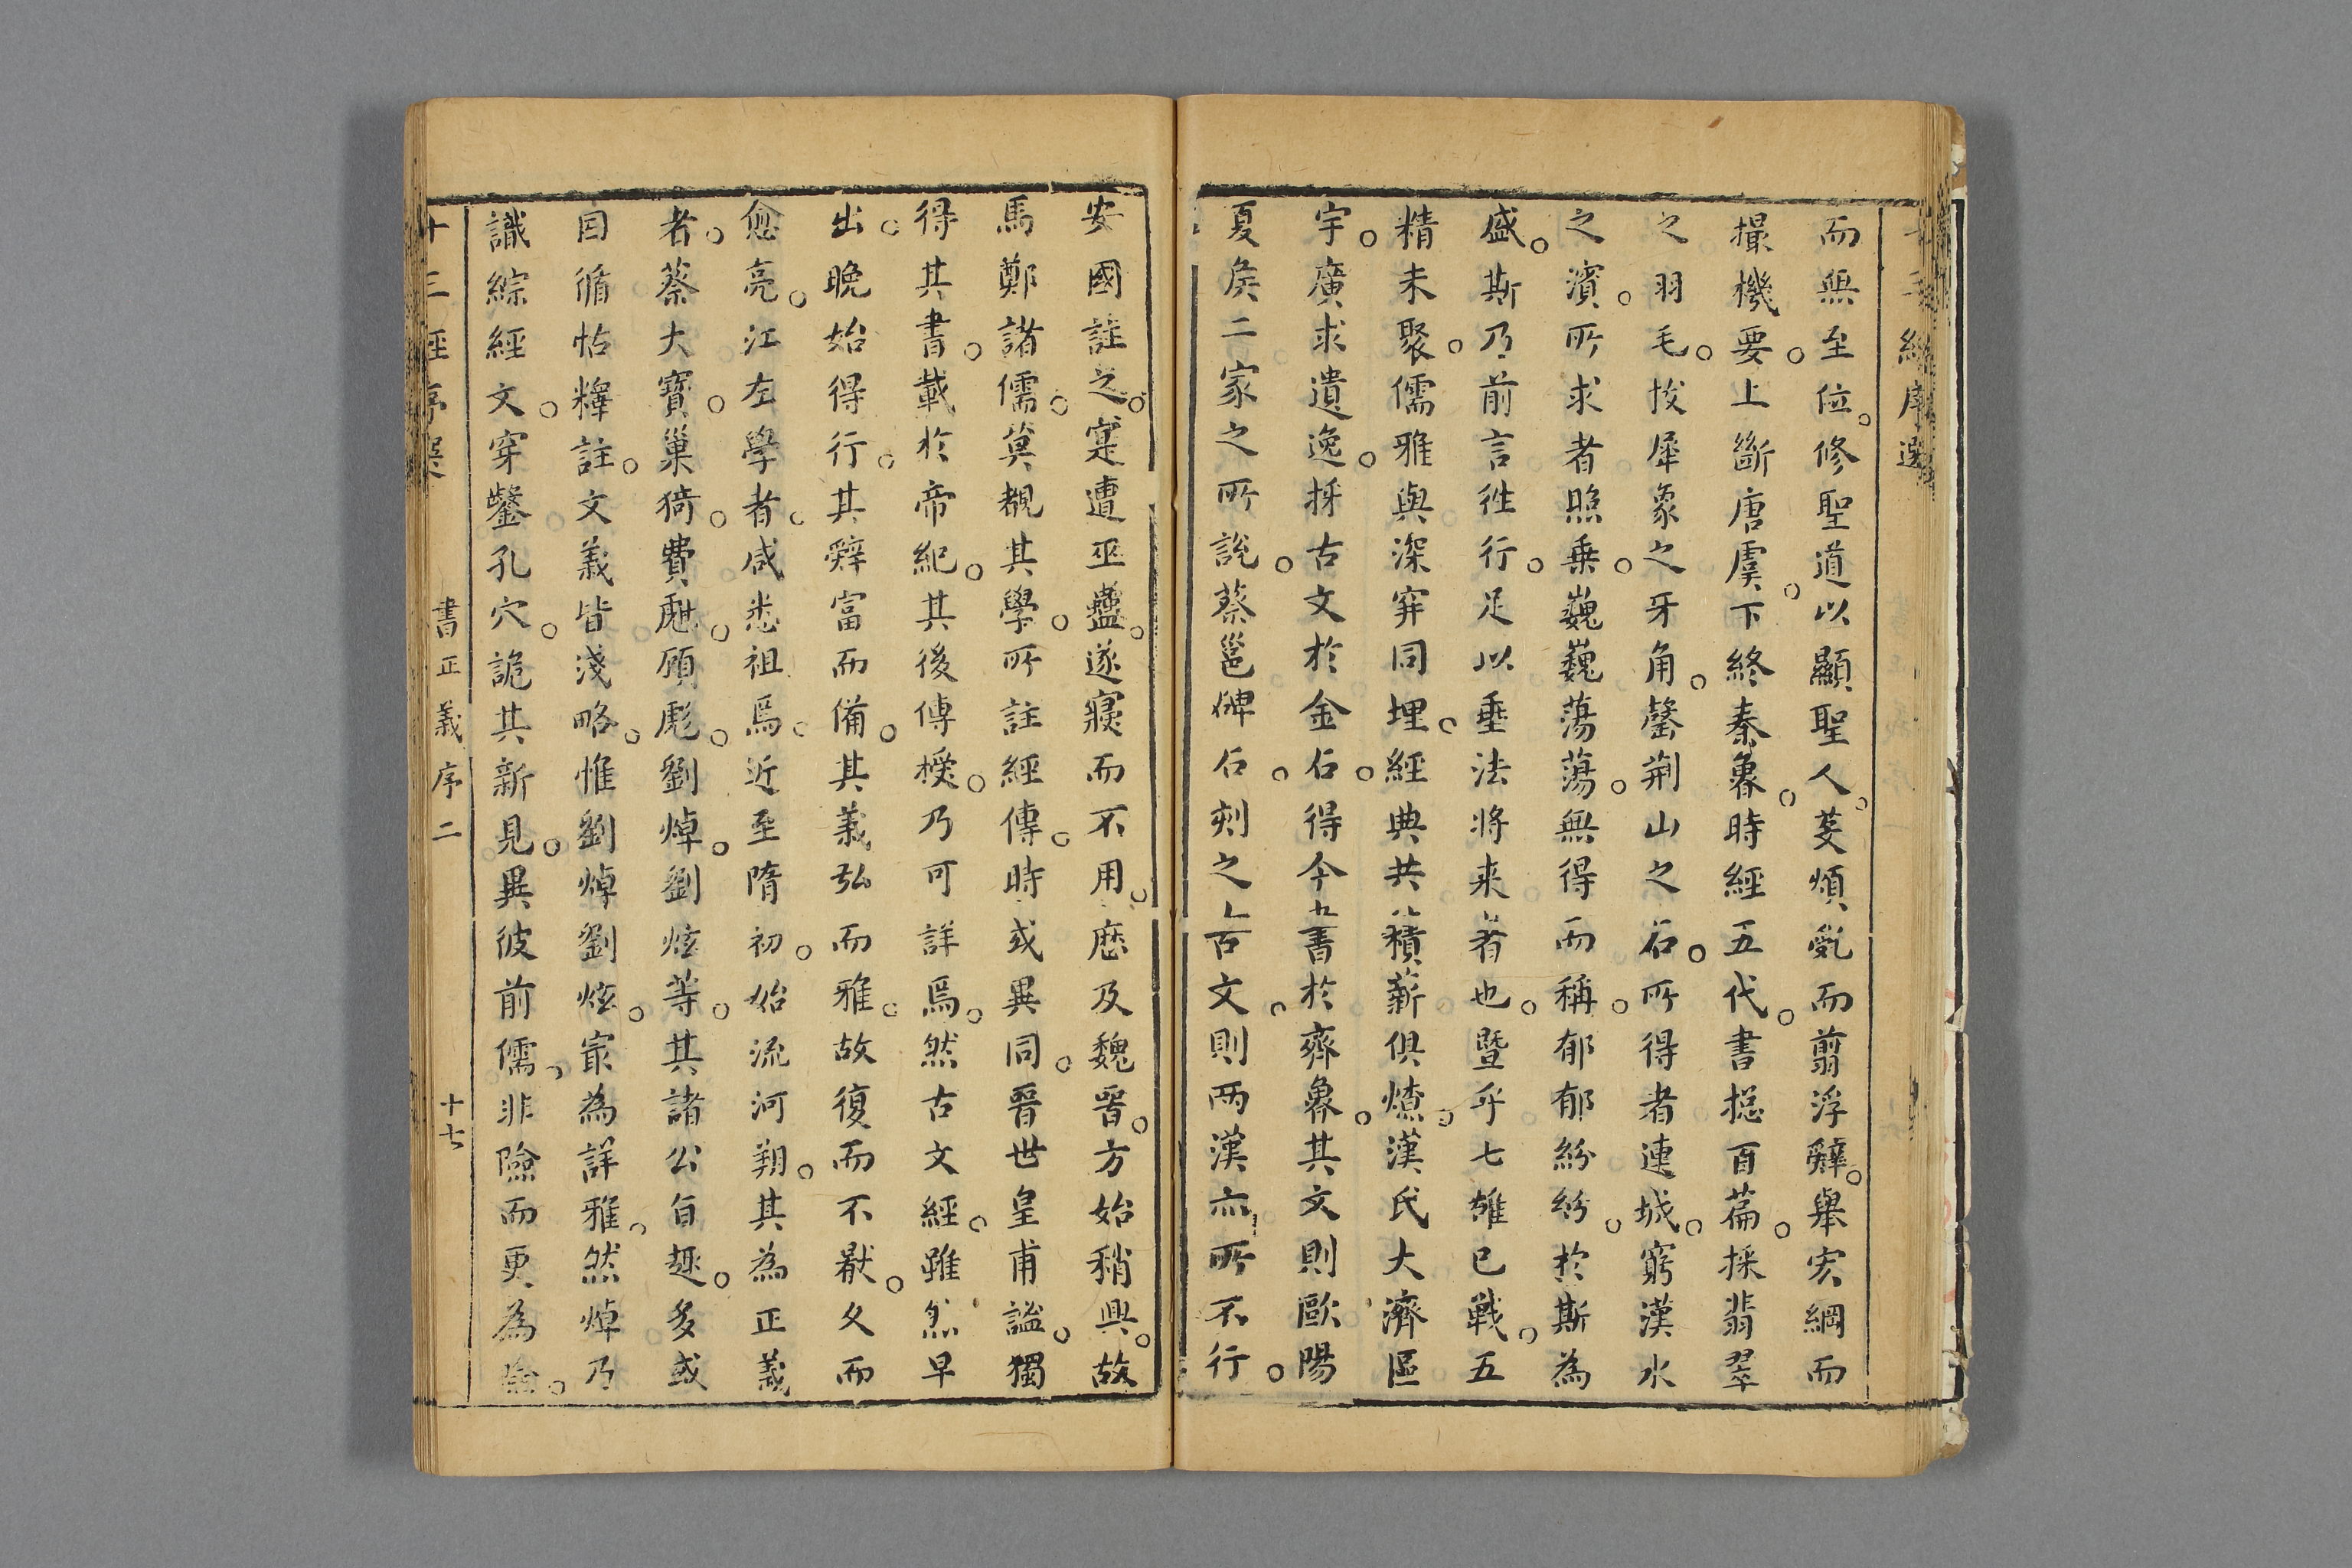 十三經序選
而無至位。修聖道以顯聖人。芟煩亂而翦浮辭。舉宏綱而
撮機要。上斷唐虞。下終秦魯。時經五代。書捴百篇。採翡翠
之羽毛。拔犀象之牙角。罄荆山之石。所得者連城。窮漢水
之濱。所求者照乗。巍巍蕩蕩。無得而稱。郁郁紛紛。於斯為
盛。斯乃前言徃行。足以垂法將来者也。暨乎七雄已戰。五
精未聚。儒雅與深穽同埋。經典共積薪俱燎。漢氏大濟區
宇。廣求遺逸。採古文於金石。得今書於齊魯。其文則歐陽
夏矦二家之所說。蔡邕碑石。刻之古文。則两漢亦所不行。
安國註之。寔遭巫蠱。遂寢而不用。歷及魏晉。方始稍興。故
馬鄭諸儒。莫覩其學。所註經傳。時或異同。晉世皇甫謐。獨
得其書。載於帝紀。其後傳授。乃可詳焉。然古文經。雖然早
出。晚始得行。其辭富而備。其義弘而雅。故復而不厭。久而
愈亮。江左學者。咸悉祖焉。近至隋初。始流河朔。其為正義
者。蔡大寶。巢猗。費甝。顧彪。劉焯。劉炫等。其諸公旨趣。多或
因循帖釋註。文義皆淺略。惟劉焯劉炫。最為詳雅。然焯乃
識綜經文。穿鑿孔穴。詭其新見。異彼前儒。非險而更為險。
十三經序選 書正義序二 十七